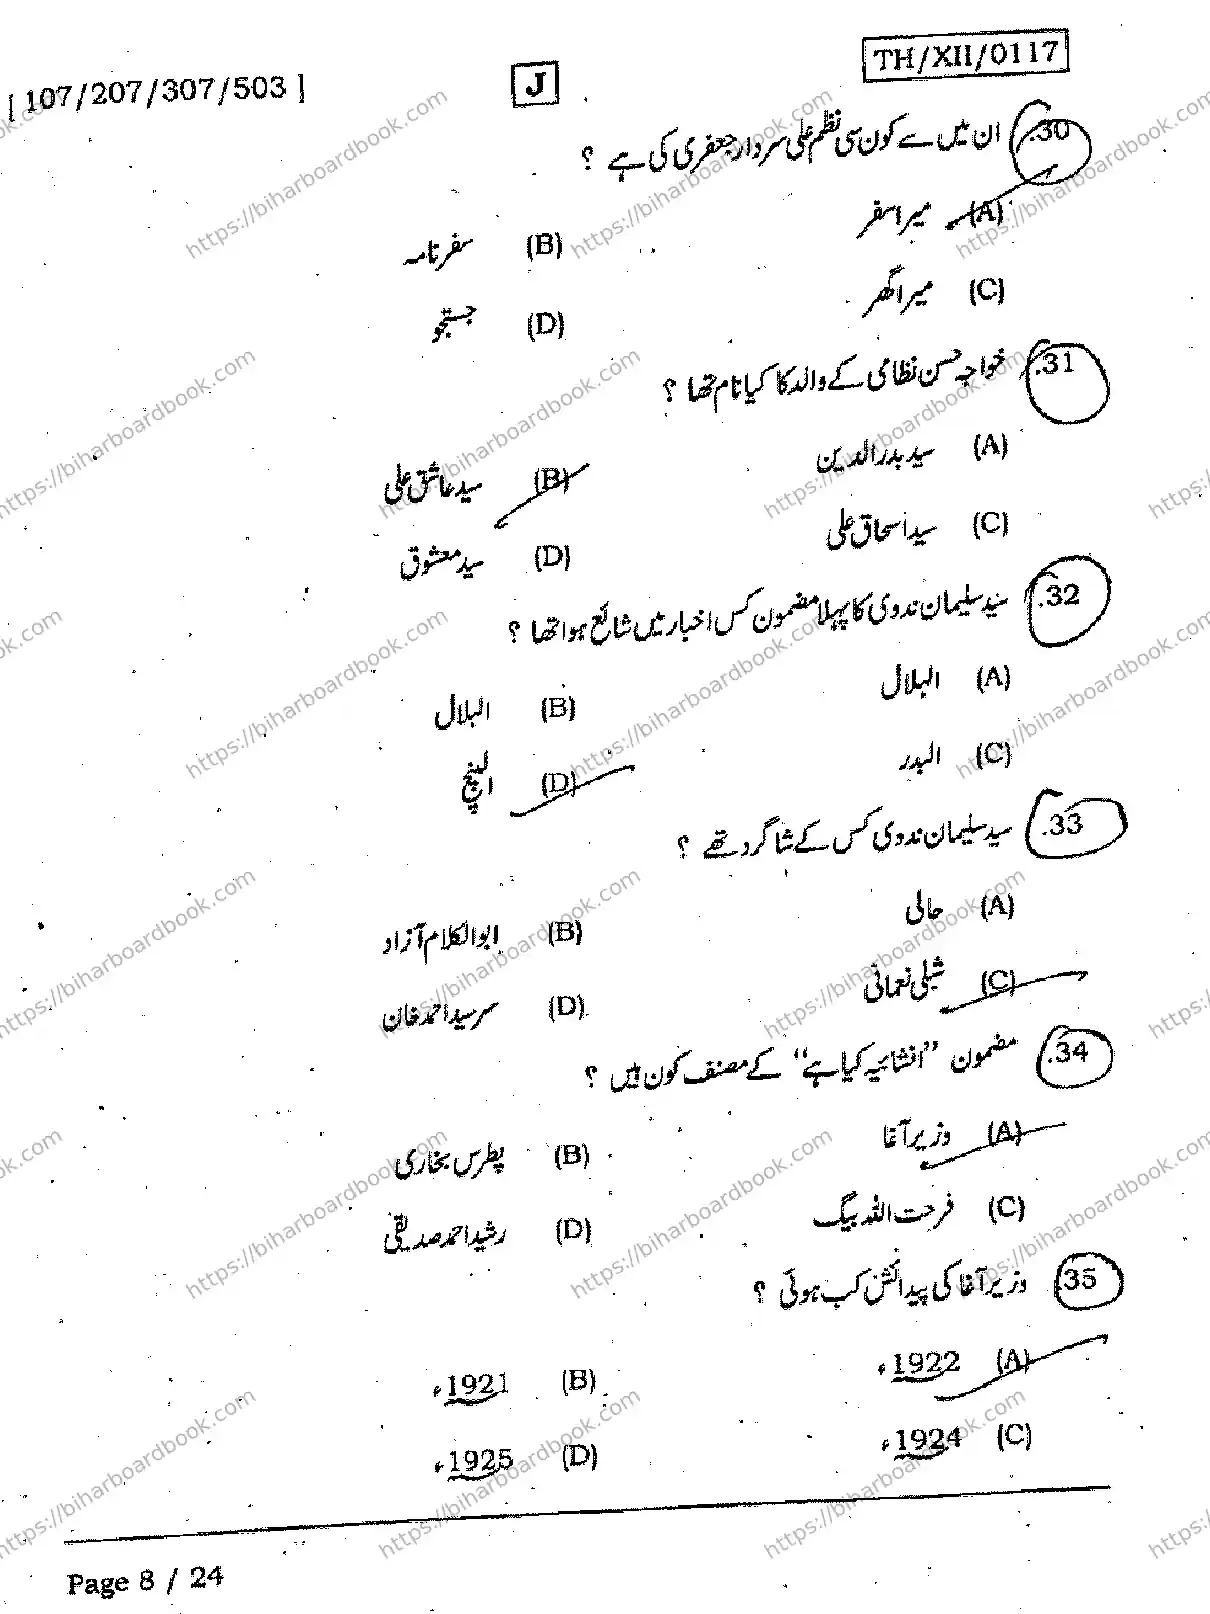 [ 107/207/307/503 ]
J
TH/XII/0117
.30 ان میں سے کون سی نظم علی سردار جعفری کی ہے ؟
(A) میرا سفر
(B) سفر نامہ
(C) میرا گھر
(D) جستجو
.31 خواجہ حسن نظامی کے والد کا کیا نام تھا ؟
(A) سید بدرالدین
(B) سید عاشق علی
(C) سید اسحاق علی
(D) سید معشوق
.32 سید سلیمان ندوی کا پہلا مضمون کس اخبار میں شائع ہوا تھا ؟
(A) الہلال
(B) البلال
(C) البدر
(D) الپنچ
.33 سید سلیمان ندوی کس کے شاگرد تھے ؟
(A) حالی
(B) ابوالکلام آزاد
(C) شبلی نعمانی
(D) سر سید احمد خان
.34 مضمون ”انشائیہ کیا ہے“ کے مصنف کون ہیں ؟
(A) وزیر آغا
(B) پطرس بخاری
(C) فرحت اللہ بیگ
(D) رشید احمد صدیقی
.35 وزیر آغا کی پیدائش کب ہوئی ؟
(A) 1922ء
(B) 1921ء
(C) 1924ء
(D) 1925ء
Page 8 / 24
https://biharboardbook.com